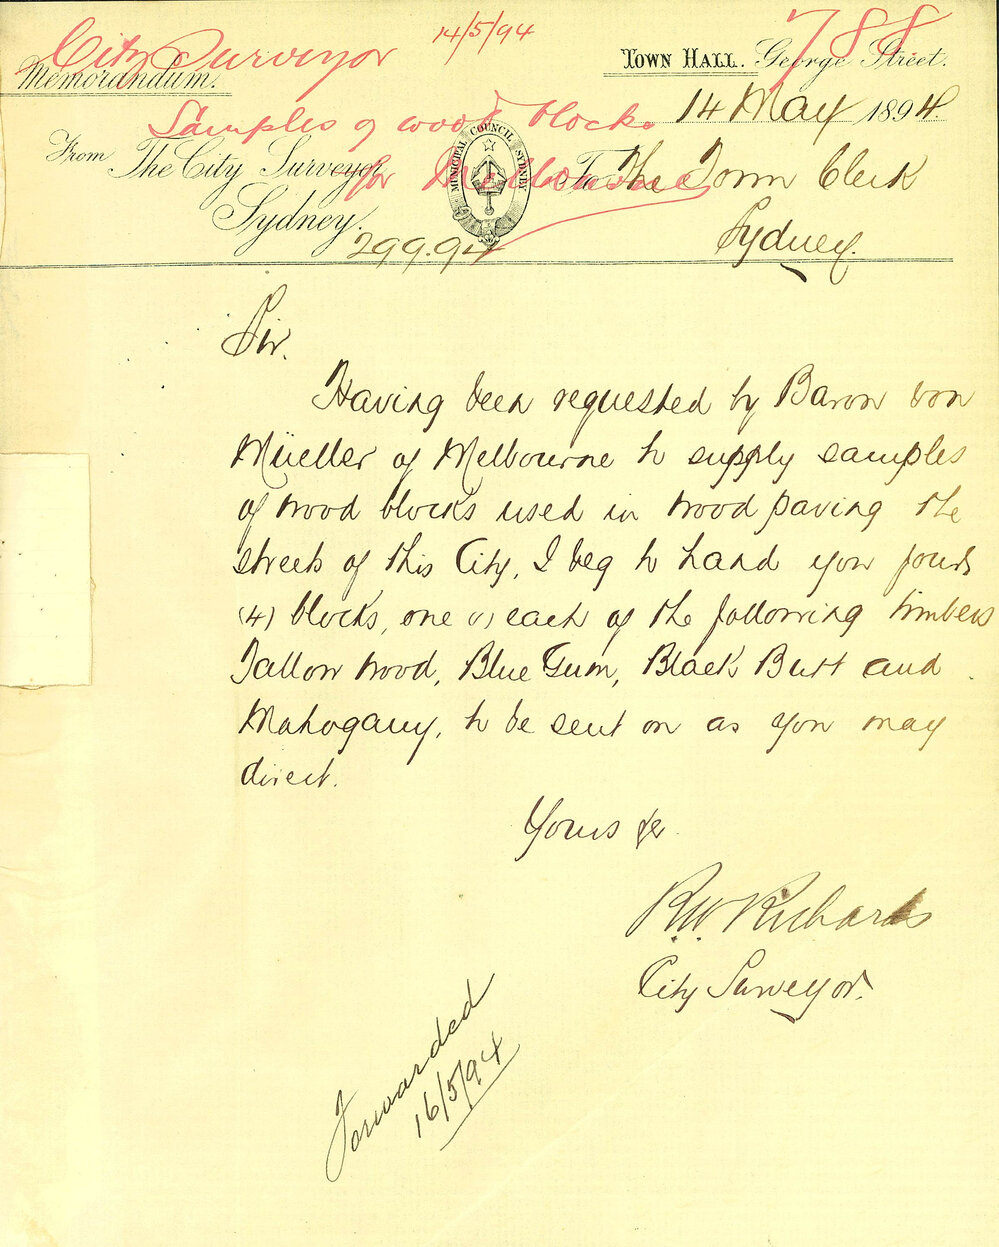 City Surveyor 14/5/94 788
Memorandum. TOWN HALL. George Street.
Samples of wood blocks 14 May 1894.
for Melbourne
MUNICIPAL COUNCIL SYDNEY
From The City Surveyor To The Town Clerk
Sydney. Sydney.
299.94
Sir.
Having been requested by Baron von
Müeller of Melbourne to supply samples
of wood blocks used in wood paving the
streets of this City, I beg to hand you four
(4) blocks, one (1) each of the following timbers
Tallow wood, Blue Gum, Black Butt and
Mahogany, to be sent on as you may
direct.
Yours &c
R.W. Richards
City Surveyor.
Forwarded
16/5/94